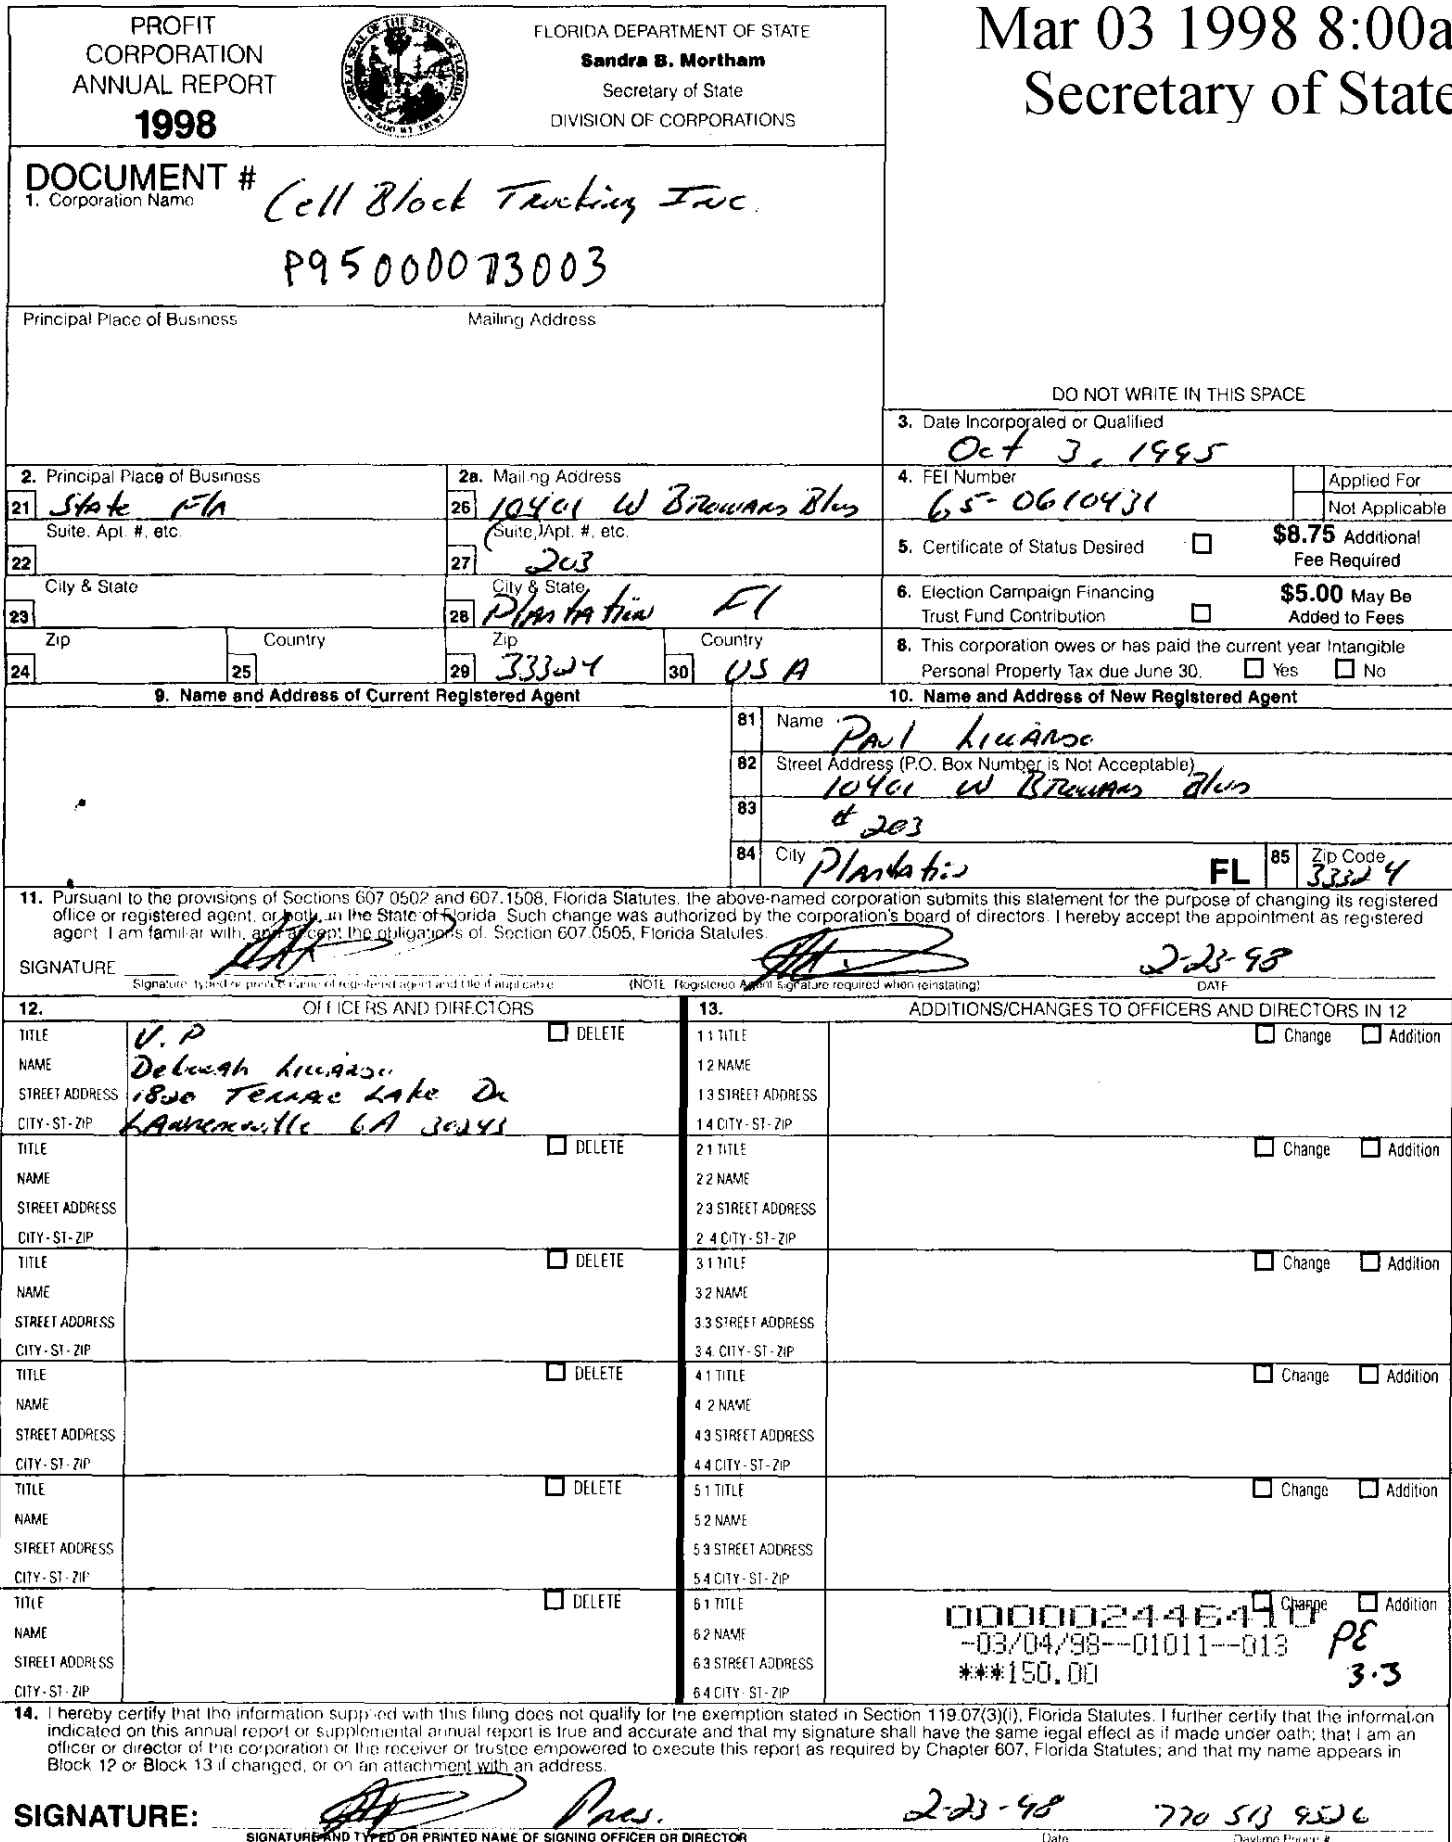 PROFIT
CORPORATION
ANNUAL REPORT
1998
GREAT SEAL OF THE STATE OF FLORIDA
IN GOD WE TRUST
FLORIDA DEPARTMENT OF STATE
Sandra B. Mortham
Secretary of State
DIVISION OF CORPORATIONS
Mar 03 1998 8:00a
Secretary of State
DOCUMENT #
1. Corporation Name
Cell Block Trucking Inc.
P95000073003
Principal Place of Business Mailing Address
DO NOT WRITE IN THIS SPACE
3. Date Incorporated or Qualified
Oct 3, 1995
2. Principal Place of Business
21 State Fla
Suite, Apt. #, etc.
22
City & State
23
Zip Country
24 25
2a. Mailing Address
26 10401 W Broward Blvd
Suite, Apt. #, etc.
27 203
City & State
28 Plantation Fl
Zip Country
29 33324 30 USA
4. FEI Number
65-0610431
Applied For
Not Applicable
5. Certificate of Status Desired ☐ $8.75 Additional
Fee Required
6. Election Campaign Financing
Trust Fund Contribution ☐ $5.00 May Be
Added to Fees
8. This corporation owes or has paid the current year Intangible
Personal Property Tax due June 30. ☐ Yes ☐ No
9. Name and Address of Current Registered Agent
10. Name and Address of New Registered Agent
81 Name Paul
82 Street Address (P.O. Box Number is Not Acceptable)
10401 W Broward Blvd
83 # 203
84 City Plantation FL 85 Zip Code 33324
11. Pursuant to the provisions of Sections 607.0502 and 607.1508, Florida Statutes, the above-named corporation submits this statement for the purpose of changing its registered
office or registered agent, or both, in the State of Florida. Such change was authorized by the corporation's board of directors. I hereby accept the appointment as registered
agent. I am familiar with, and accept the obligations of, Section 607.0505, Florida Statutes.
SIGNATURE 2-23-98
Signature, typed or printed name of registered agent and title if applicable (NOTE: Registered Agent signature required when reinstating) DATE
12. OFFICERS AND DIRECTORS
TITLE V.P ☐ DELETE
NAME Deborah
STREET ADDRESS 1820 Terrac Lake Dr
CITY-ST-ZIP Lawrenceville GA 30243
TITLE ☐ DELETE
NAME
STREET ADDRESS
CITY-ST-ZIP
TITLE ☐ DELETE
NAME
STREET ADDRESS
CITY-ST-ZIP
TITLE ☐ DELETE
NAME
STREET ADDRESS
CITY-ST-ZIP
TITLE ☐ DELETE
NAME
STREET ADDRESS
CITY-ST-ZIP
TITLE ☐ DELETE
NAME
STREET ADDRESS
CITY-ST-ZIP
13. ADDITIONS/CHANGES TO OFFICERS AND DIRECTORS IN 12
1.1 TITLE ☐ Change ☐ Addition
1.2 NAME
1.3 STREET ADDRESS
1.4 CITY-ST-ZIP
2.1 TITLE ☐ Change ☐ Addition
2.2 NAME
2.3 STREET ADDRESS
2.4 CITY-ST-ZIP
3.1 TITLE ☐ Change ☐ Addition
3.2 NAME
3.3 STREET ADDRESS
3.4. CITY-ST-ZIP
4.1 TITLE ☐ Change ☐ Addition
4.2 NAME
4.3 STREET ADDRESS
4.4 CITY-ST-ZIP
5.1 TITLE ☐ Change ☐ Addition
5.2 NAME
5.3 STREET ADDRESS
5.4 CITY-ST-ZIP
6.1 TITLE ☐ Change ☐ Addition
6.2 NAME
6.3 STREET ADDRESS
6.4 CITY-ST-ZIP
000002446410
-03/04/98--01011--013
***150.00
PE
3.3
14. I hereby certify that the information supplied with this filing does not qualify for the exemption stated in Section 119.07(3)(i), Florida Statutes. I further certify that the information
indicated on this annual report or supplemental annual report is true and accurate and that my signature shall have the same legal effect as if made under oath; that I am an
officer or director of the corporation or the receiver or trustee empowered to execute this report as required by Chapter 607, Florida Statutes; and that my name appears in
Block 12 or Block 13 if changed, or on an attachment with an address.
SIGNATURE: Pres. 2-23-98 770 513 9526
SIGNATURE AND TYPED OR PRINTED NAME OF SIGNING OFFICER OR DIRECTOR Date Daytime Phone #